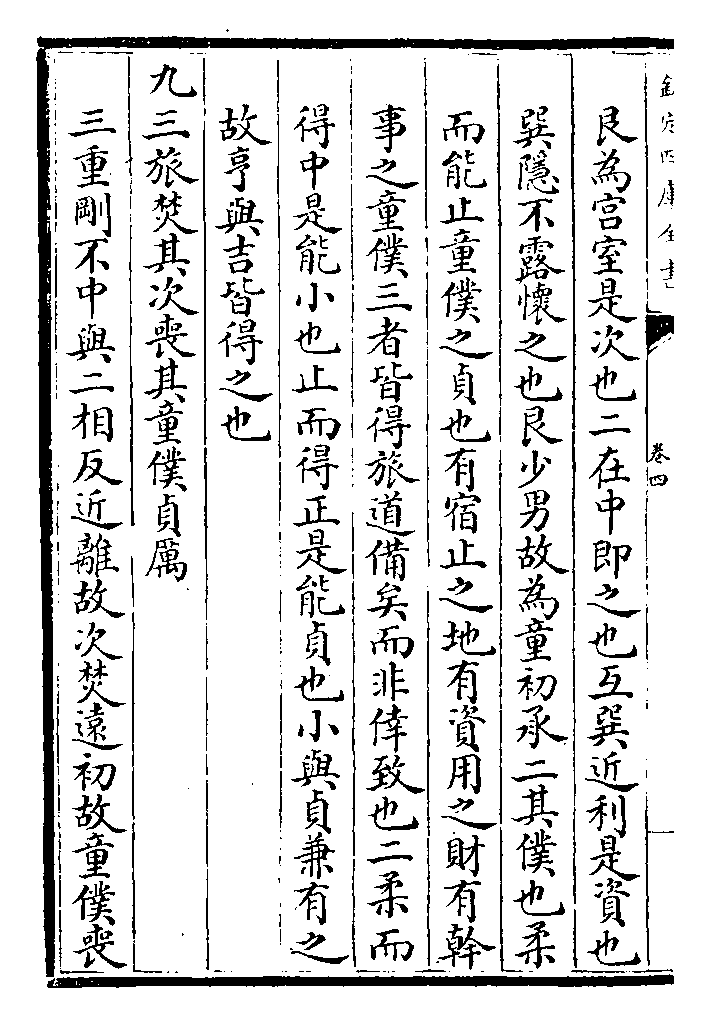 欽定四庫全書
卷四
艮為宫室是次也二在中即之也互巽近利是資也
巽隱不露懷之也艮少男故為童初承二其僕也柔
而能止童僕之貞也有宿止之地有資用之財有幹
事之童僕三者皆得旅道備矣而非倖致也二柔而
得中是能小也止而得正是能貞也小與貞兼有之
故亨與吉皆得之也
九三旅焚其次喪其童僕貞厲
三重剛不中與二相反近離故次焚遠初故童僕喪